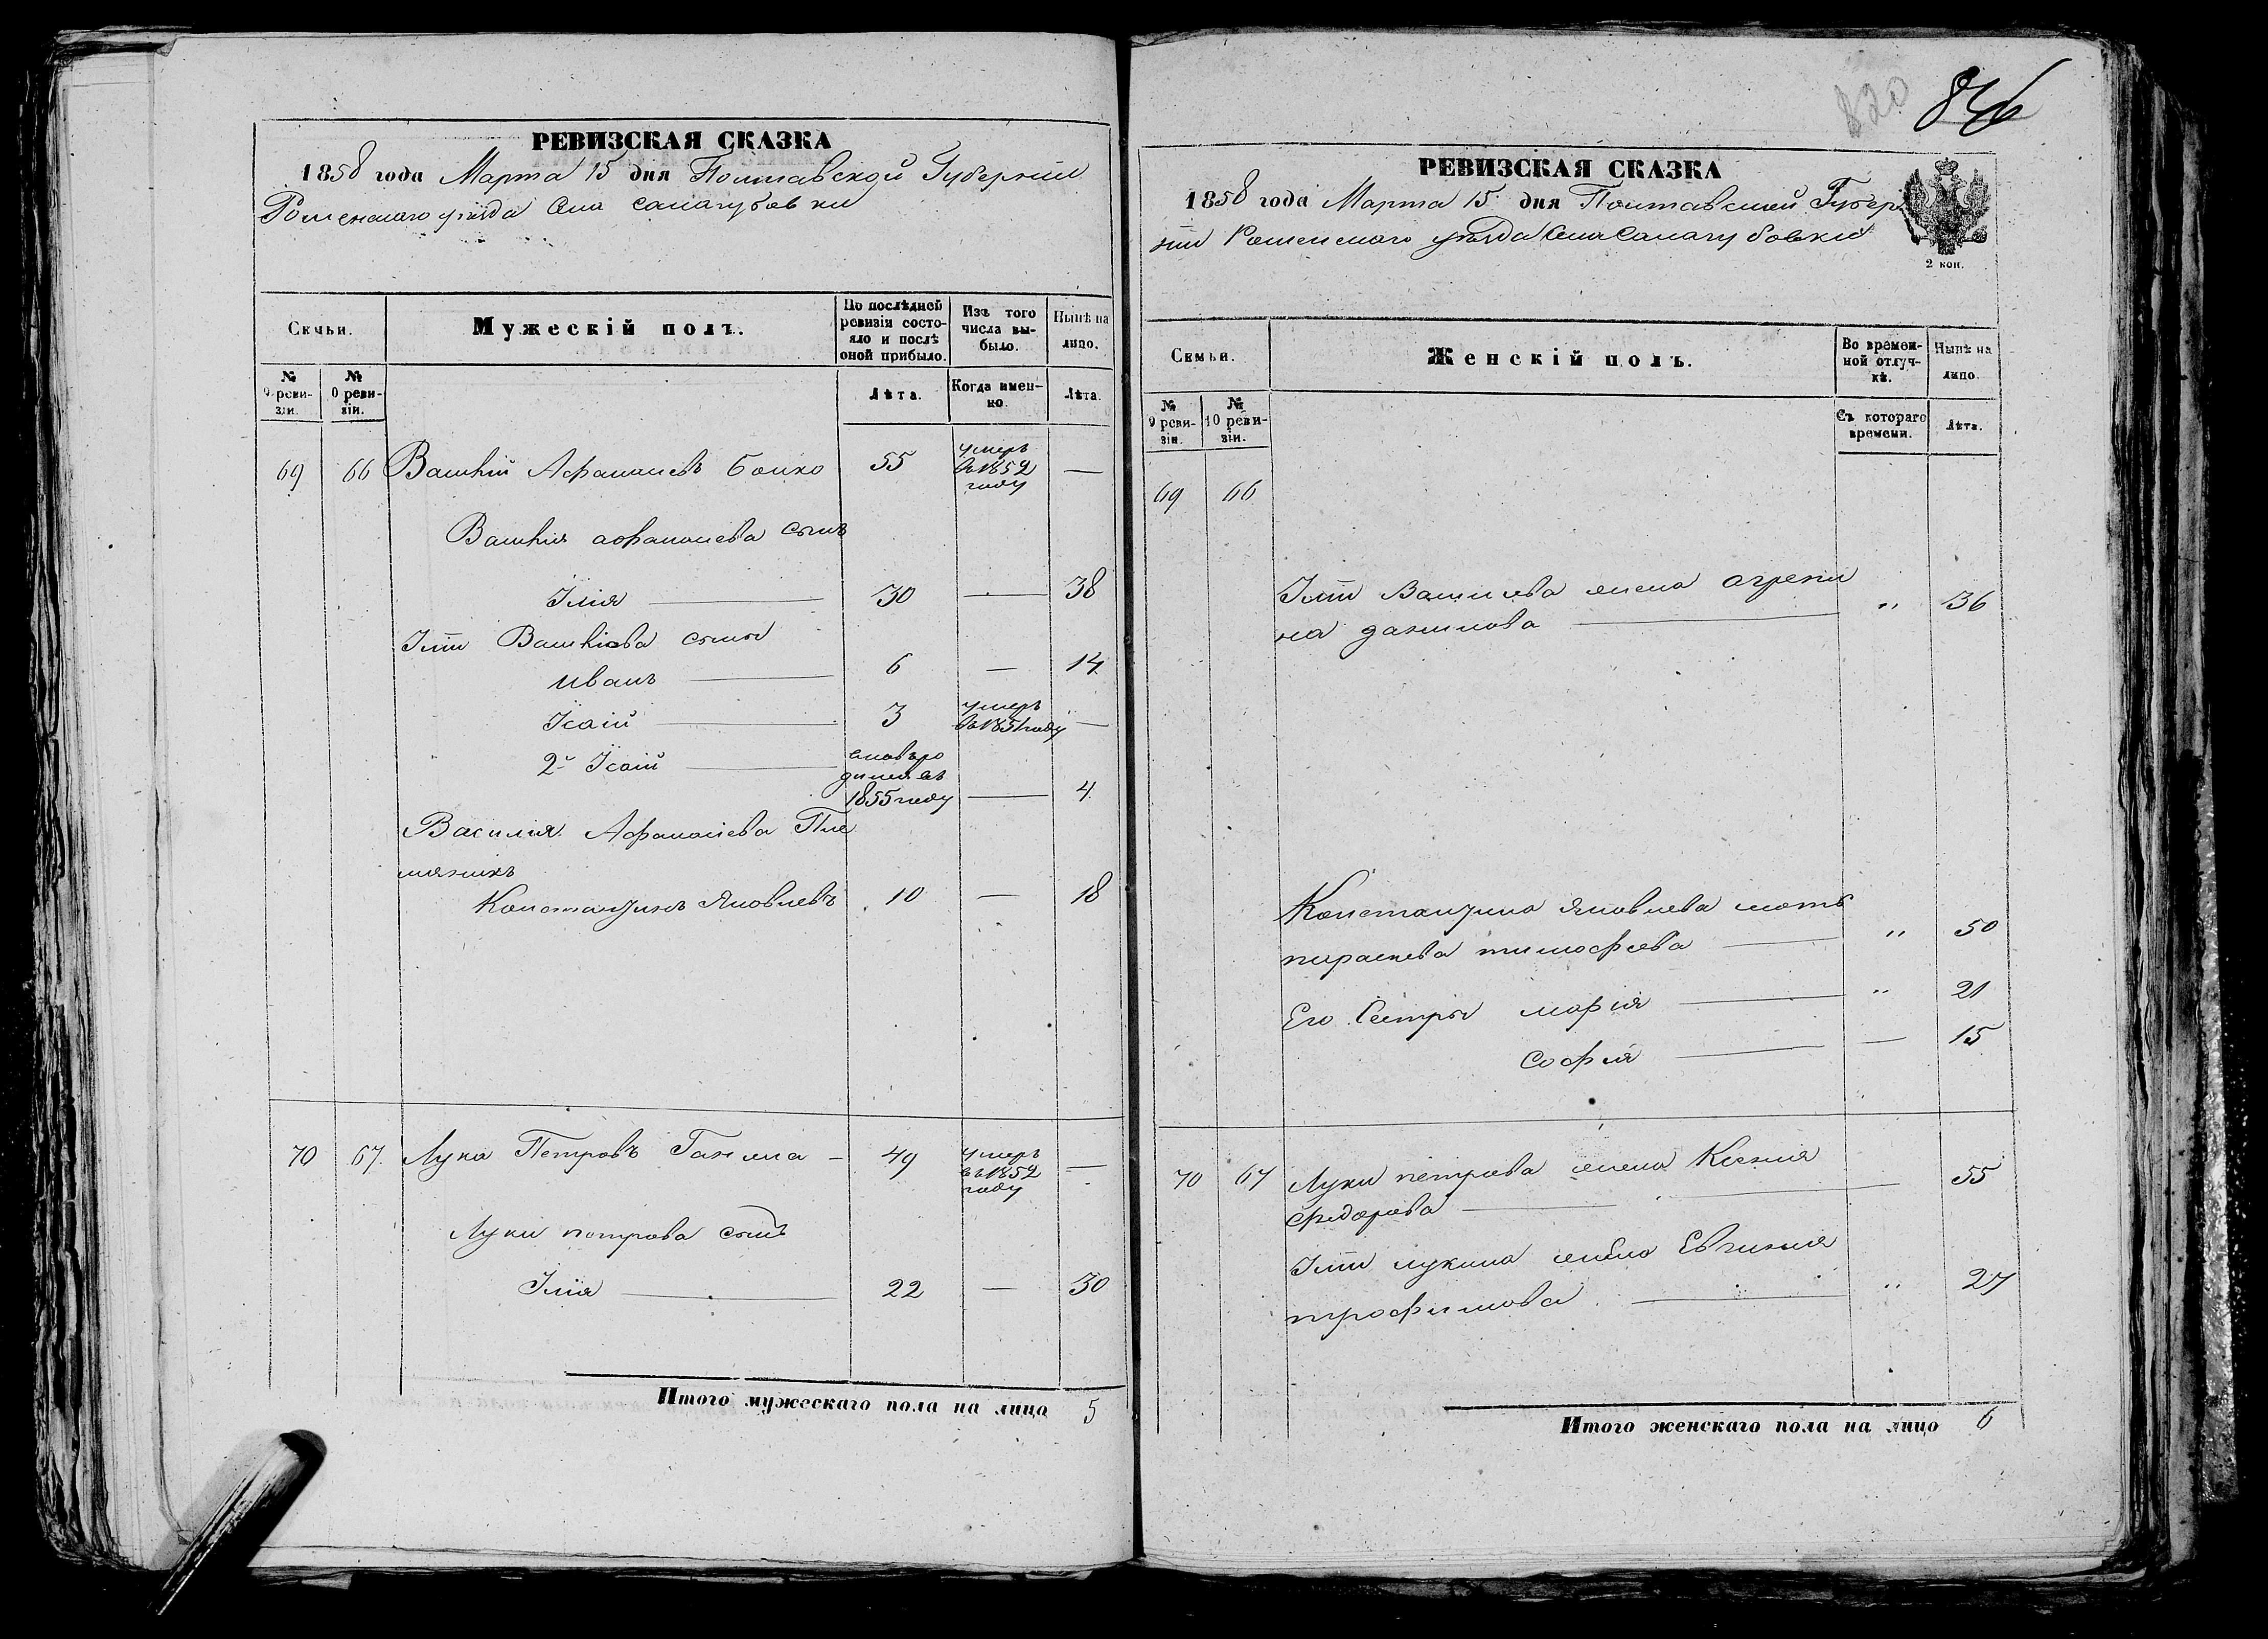 РЕВИЗСКАЯ СКАЗКА
1858 года Марта 15 дня Полтавской Губернии
Роменского уезда Села Салагубовки
Семьи.
Мужескій полъ.
По послѣдней ревизіи состояло и послѣ оной прибыло.
Изъ того числа выбыло.
Нынѣ на лицо.
№ 9 ревизіи.
№ 0 ревизіи.
Лѣта.
Когда именно.
Лѣта.
69 66 Василій Афанасіевъ Бойко 55 умеръ въ 1852 году —
Василія Афанасиева сынъ
Ілія 30 — 38
Ілiи Василіева сыны
Иванъ 6 — 14
Ісаій 3 умеръ въ 1851 году —
2й Ісаій 1855 году — 4
Василия Афанасіева Пле
мяникъ
Константинъ Яковлевъ 10 — 18
70 67 Лука Петровъ 49 умеръ въ 1852 году —
Луки петрова сынъ
Ілія 22 — 30
Итого мужескаго пола на лицо 5
820
846
РЕВИЗСКАЯ СКАЗКА
1858 года Марта 15 дня Полтавской Губер
нiи Роменского уѣзда Села Салагубовки
2 коп.
Семьи.
Женскій полъ.
Во временной отлучкѣ.
Нынѣ на лицо.
№ 9 ревизіи.
№ 10 ревизіи.
Съ котораго времени.
Лѣта.
69 66
Іліи Василиева жена агрепи
на данилова " 36
Константина Яковлева мать
параскева тимофеева " 50
Его Сестры марія " 21
софия — 15
70 67 Луки петрова жена Ксения
федорова — 55
Іліи лукина жена Евгиния
трофимова " 27
Итого женскаго пола на лицо 6